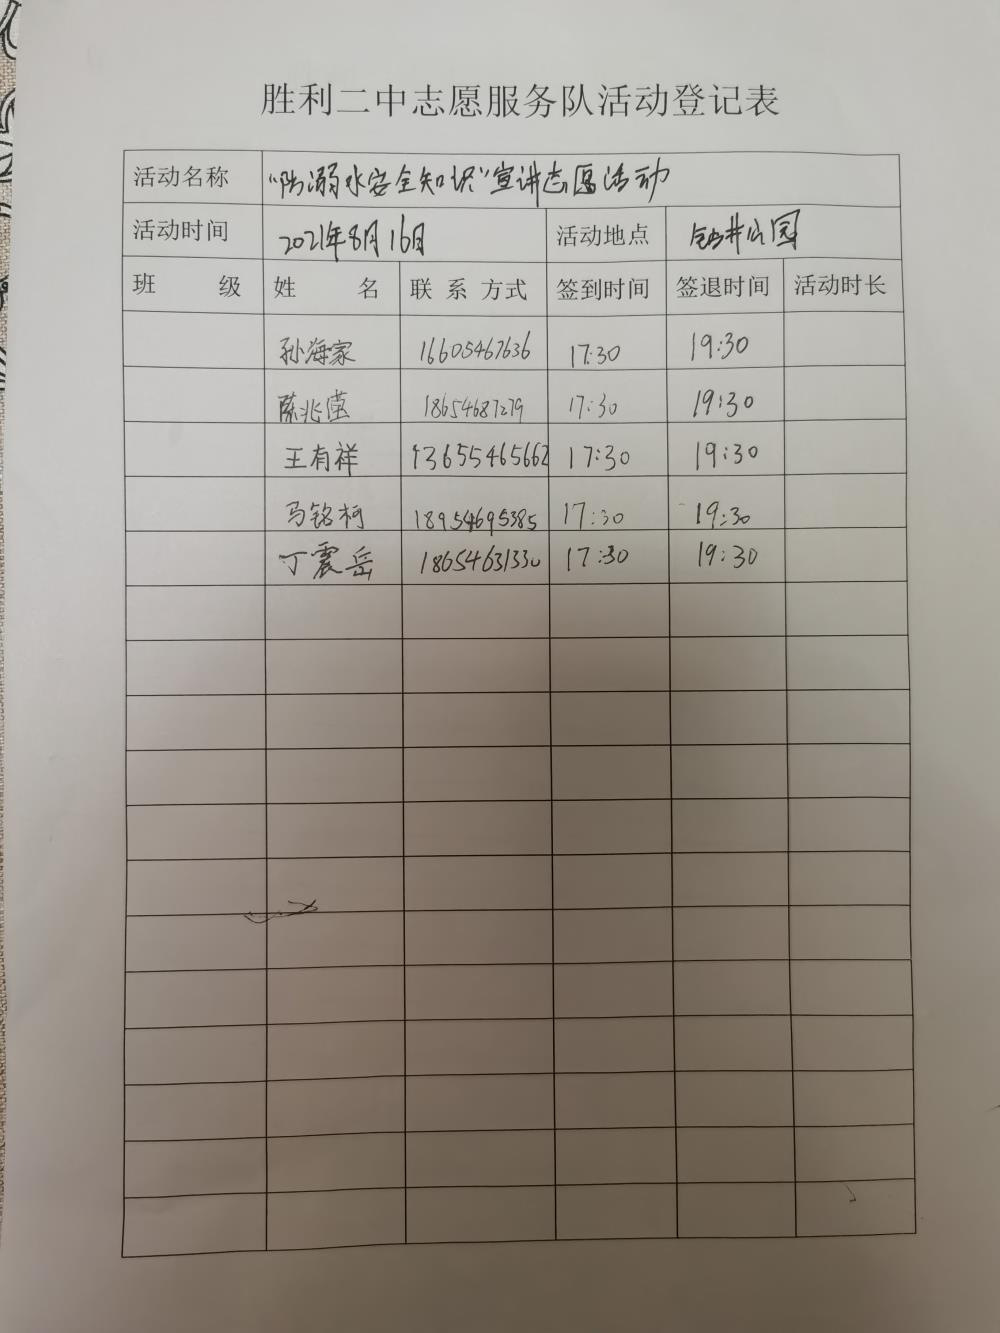 胜利二中志愿服务队活动登记表
活动名称 “防溺水安全知识”宣讲志愿活动
活动时间 2021年8月16日 活动地点 钻井公园
班 级 姓 名 联系方式 签到时间 签退时间 活动时长
孙海家 16605467636 17:30 19:30
陈兆莹 18654687279 17:30 19:30
王有祥 13655465662 17:30 19:30
马铭柯 18954695385 17:30 19:30
丁震岳 18654631330 17:30 19:30